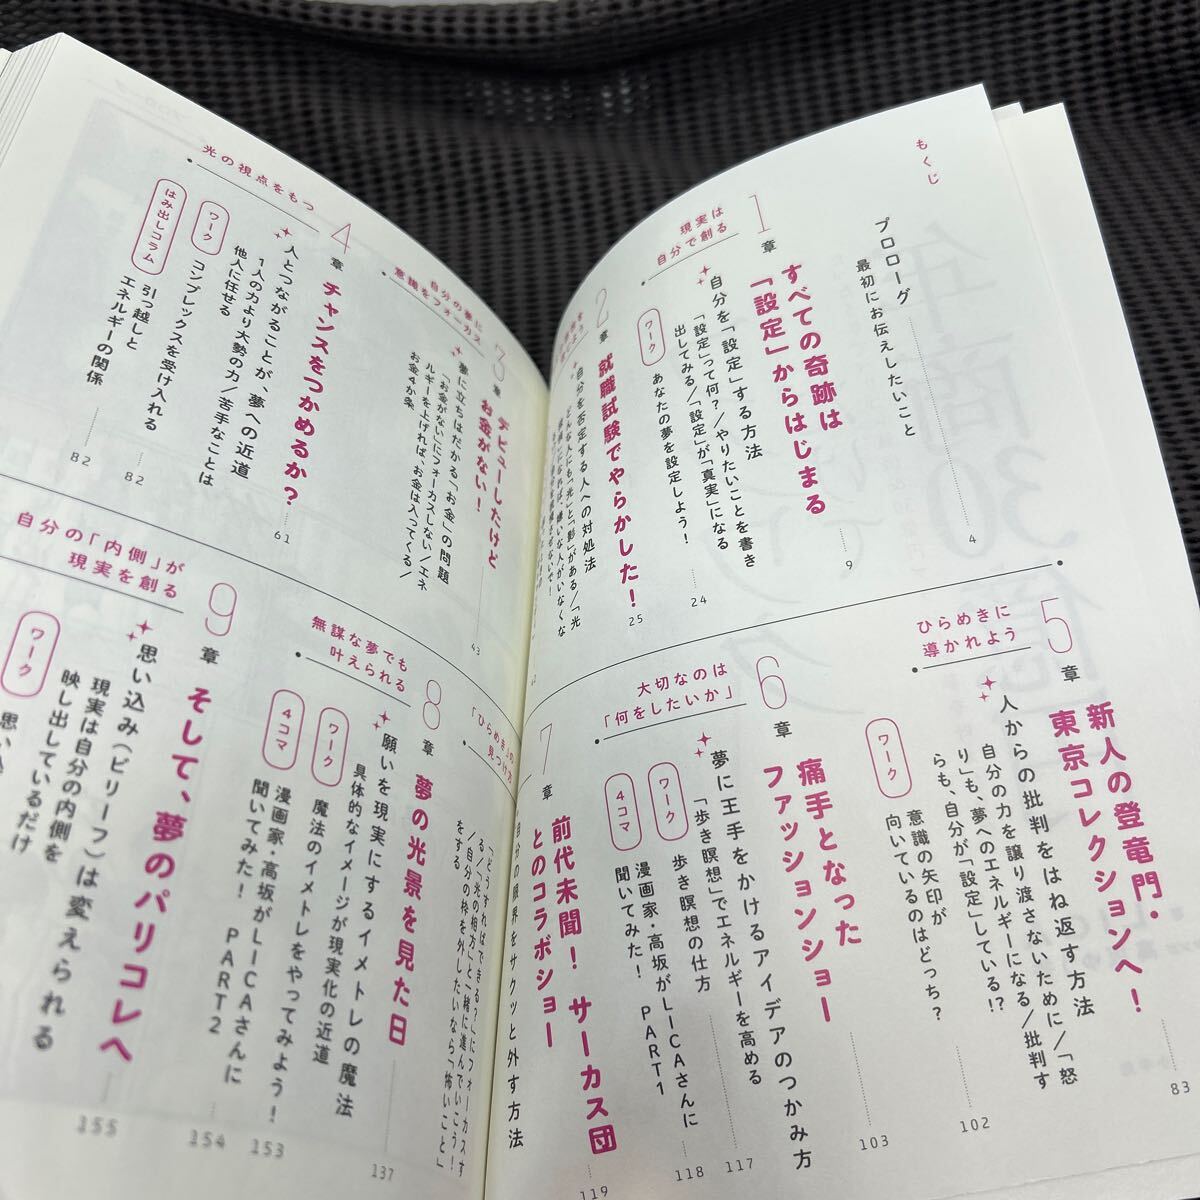 もくじ
プロローグ
最初にお伝えしたいこと
4
現実は
自分で創る
1章
すべての奇跡は
「設定」からはじまる
9
自分を「設定」する方法
「設定」って何?/やりたいことを書き
出してみる/「設定」が「真実」になる
ワーク
あなたの夢を設定しよう!
24
2章
就職試験でやらかした!
25
自分を否定する人への対処法
どんな人にも「光」と「影」がある/「光
自分の夢に
意識をフォーカス
3章
デビューしたけど
お金がない!
43
夢に立ちはだかる「お金」の問題
「お金がない」にフォーカスしない/エネ
ルギーを上げれば、お金は入ってくる/
お金4か条
光の視点をもつ
4章
チャンスをつかめるか?
61
人とつながることが、夢への近道
1人の力より大勢の力/苦手なことは
他人に任せる
ワーク
コンプレックスを受け入れる
82
はみ出しコラム
引っ越しと
エネルギーの関係
82
ひらめきに
導かれよう
5章
新人の登竜門・
東京コレクションへ!
83
人からの批判をはね返す方法
自分の力を譲り渡さないために/「怒
り」も、夢へのエネルギーになる/批判す
らも、自分が「設定」している!?
102
ワーク
意識の矢印が
向いているのはどっち?
大切なのは
「何をしたいか」
6章
痛手となった
ファッションショー
103
夢に王手をかけるアイデアのつかみ方
「歩き瞑想」でエネルギーを高める
117
ワーク
歩き瞑想の仕方
118
4コマ
漫画家・高坂がLICAさんに
聞いてみた! PART1
「ひらめき」の
見つけ方
7章
前代未聞! サーカス団
とのコラボショー
119
自分の限界をサクッと外す方法
「どうすればできる?」にフォーカスす
る/「光の相方」と一緒に進んでいこう!
/自分の枠を外したいなら「怖いこと」
をする
無謀な夢でも
叶えられる
8章
夢の光景を見た日
137
願いを現実にするイメトレの魔法
具体的なイメージが現実化の近道
ワーク
魔法のイメトレをやってみよう!
153
4コマ
漫画家・高坂がLICAさんに
聞いてみた! PART2
154
自分の「内側」が
現実を創る
9章
そして、夢のパリコレへ
155
思い込み(ビリーフ)は変えられる
現実は自分の内側を
映し出しているだけ
ワーク